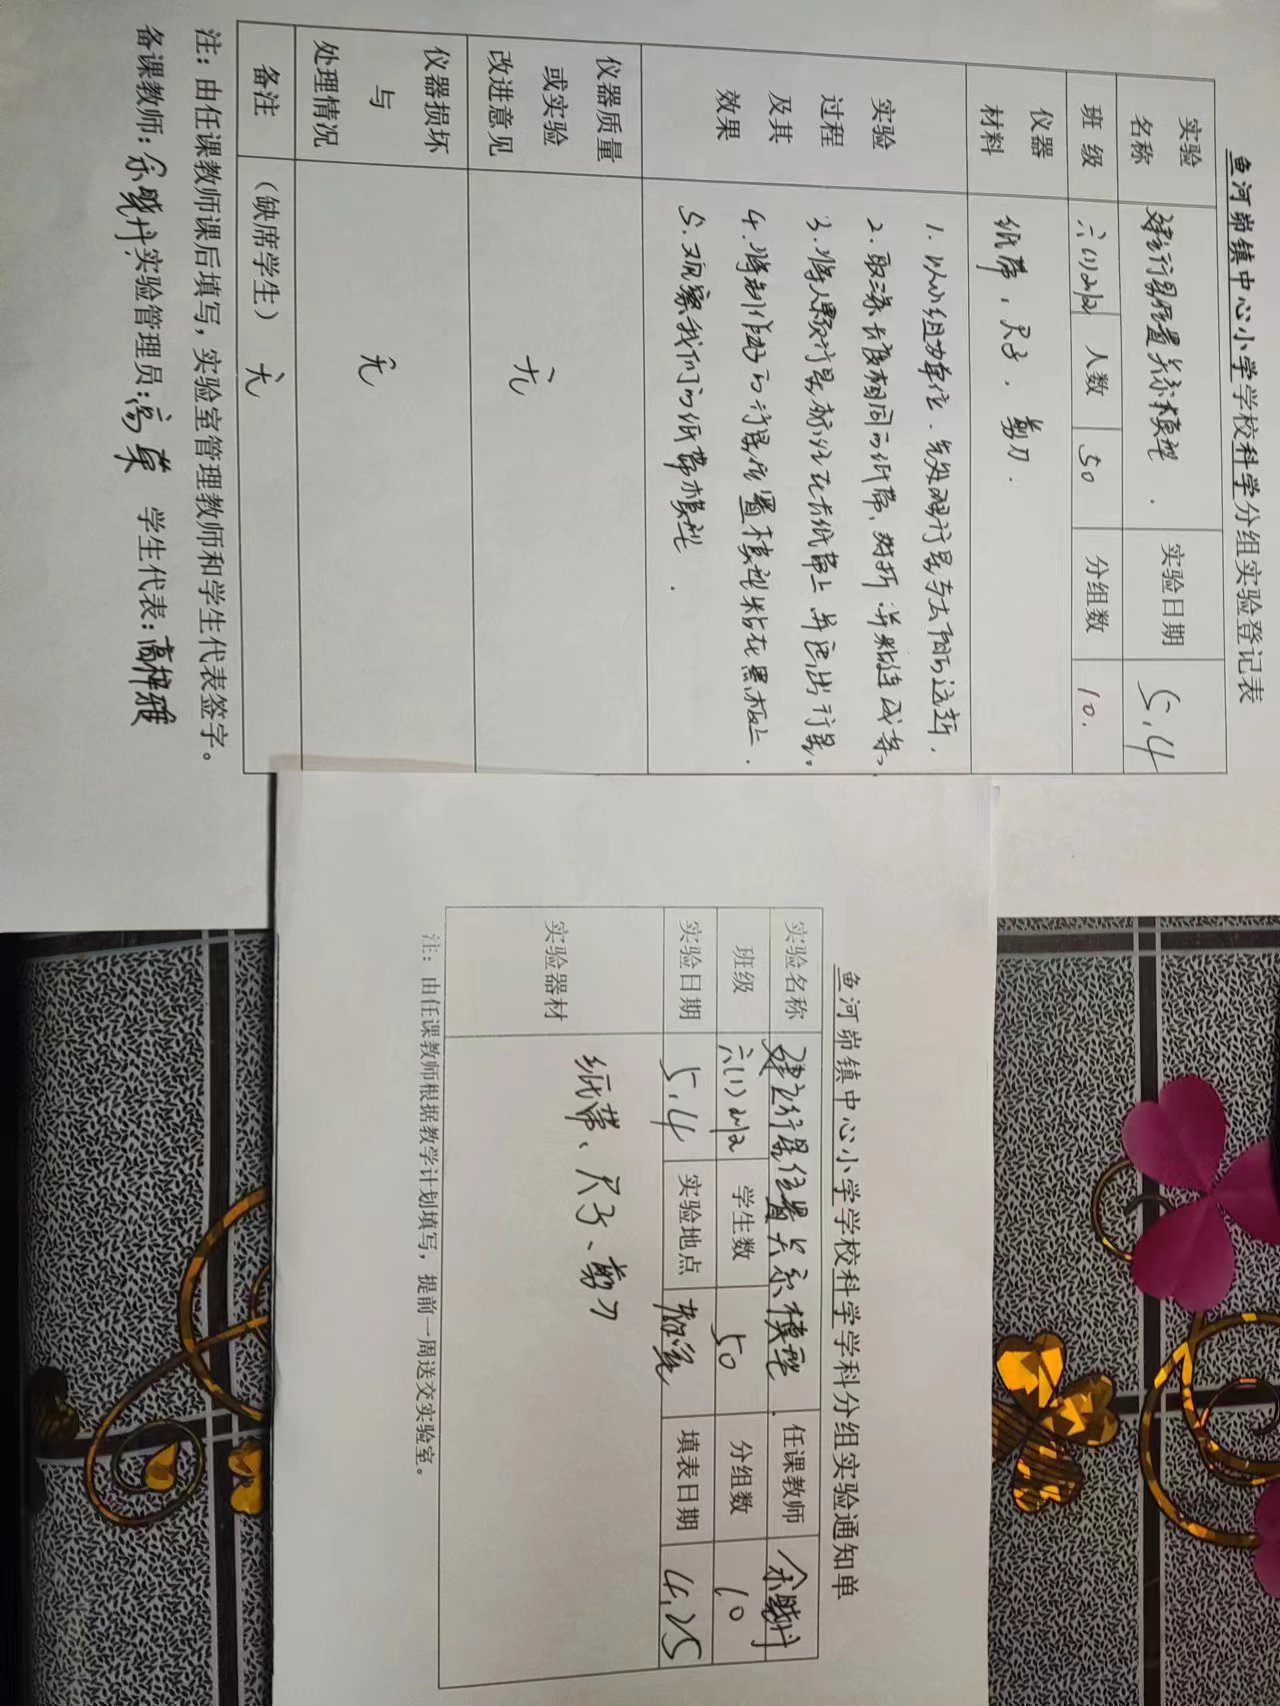 鱼河峁镇中心小学学校科学分组实验登记表
实验名称 建立行星位置关系模型. 实验日期 5.4
班级 六(1)班 人数 50 分组数 10.
仪器材料 纸带、尺子、剪刀.
实验过程及其效果
1.以小组为单位.先处理行星与太阳的远近.
2.取三条长度相同的纸带,对折并粘连成条,
3.将八颗行星标注在长纸带上并画出行星。
4.将制作好的行星位置模型粘在黑板上.
5.观察我们的纸带模型.
仪器质量或实验改进意见 无
仪器损坏与处理情况 无
备注 (缺席学生) 无
注:由任课教师课后填写,实验室管理教师和学生代表签字。
备课教师:余晓丹 实验管理员:高英 学生代表:高梓雅
鱼河峁镇中心小学学校科学学科分组实验通知单
实验名称 建立行星位置关系模型. 任课教师 余晓丹
班级 六(1)班 学生数 50 分组数 10
实验日期 5.4 实验地点 教室 填表日期 4.25
实验器材 纸带、尺子、剪刀
注:由任课教师根据教学计划填写,提前一周送交实验室。